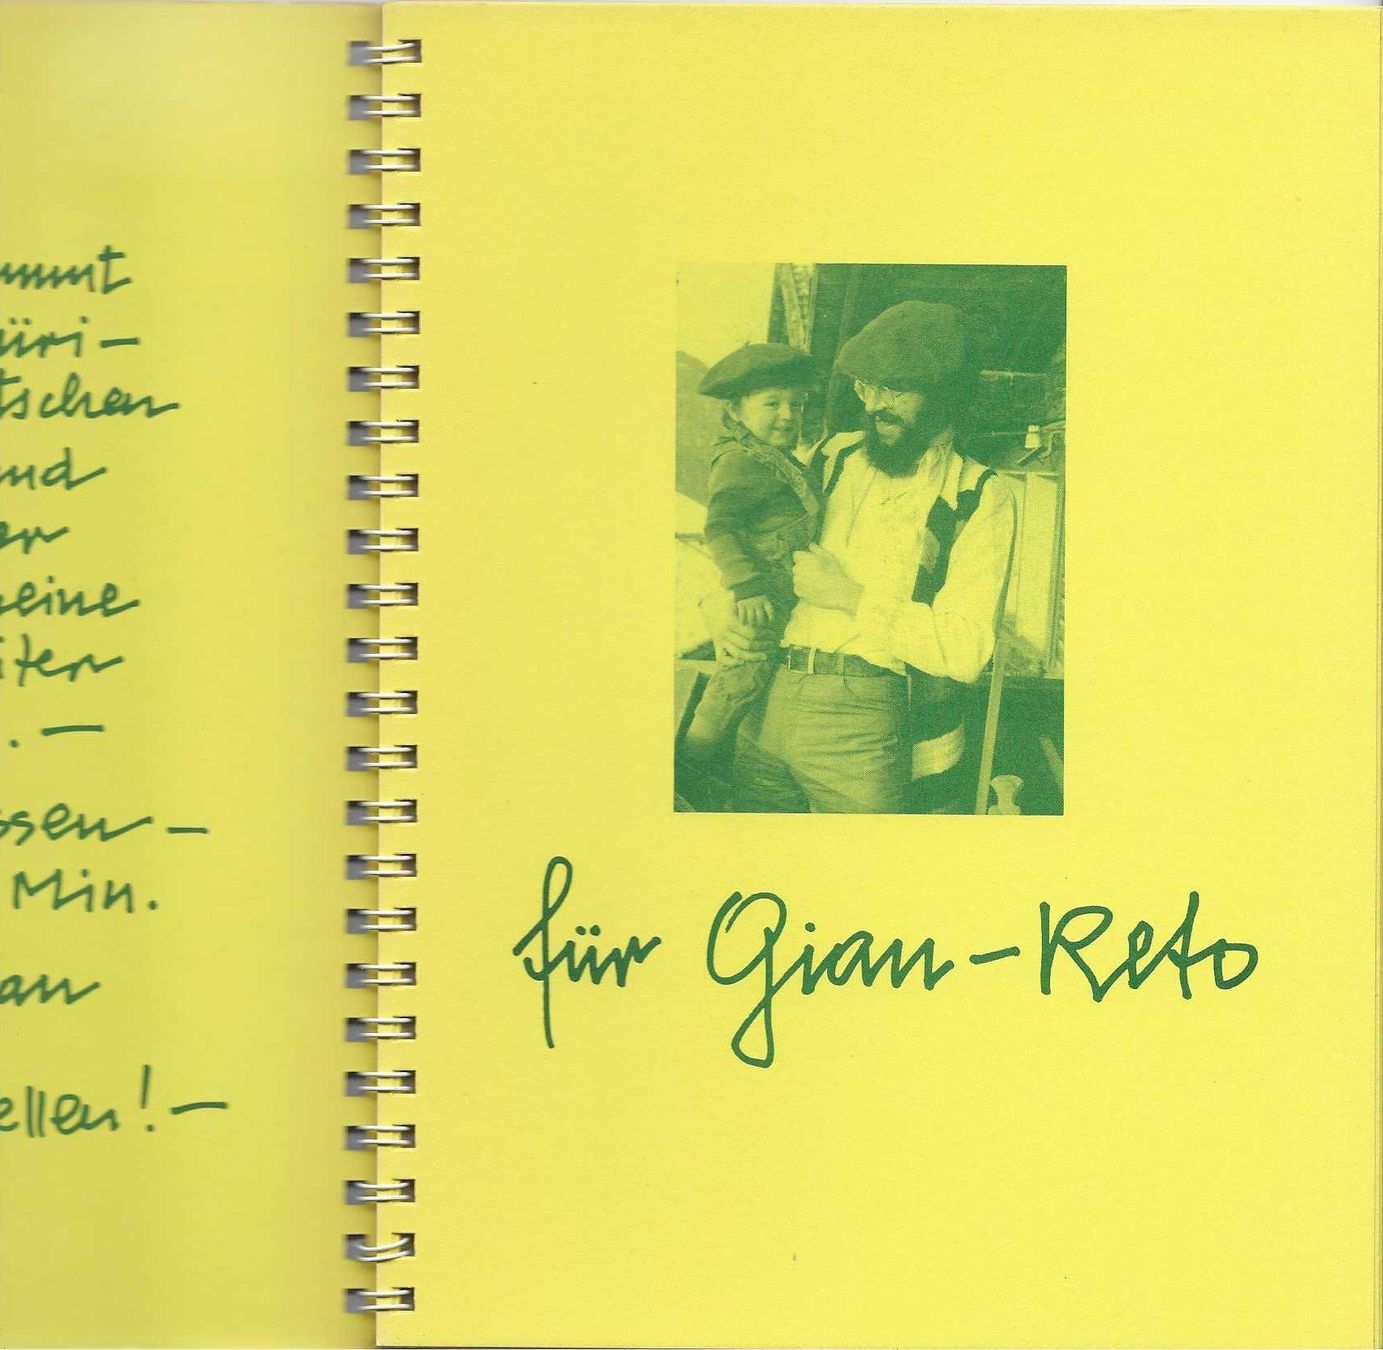 mmt
üri–
tschen
und
er
eine
iter
. –
ssen –
Min.
an
ellen! –
für Gian-Reto